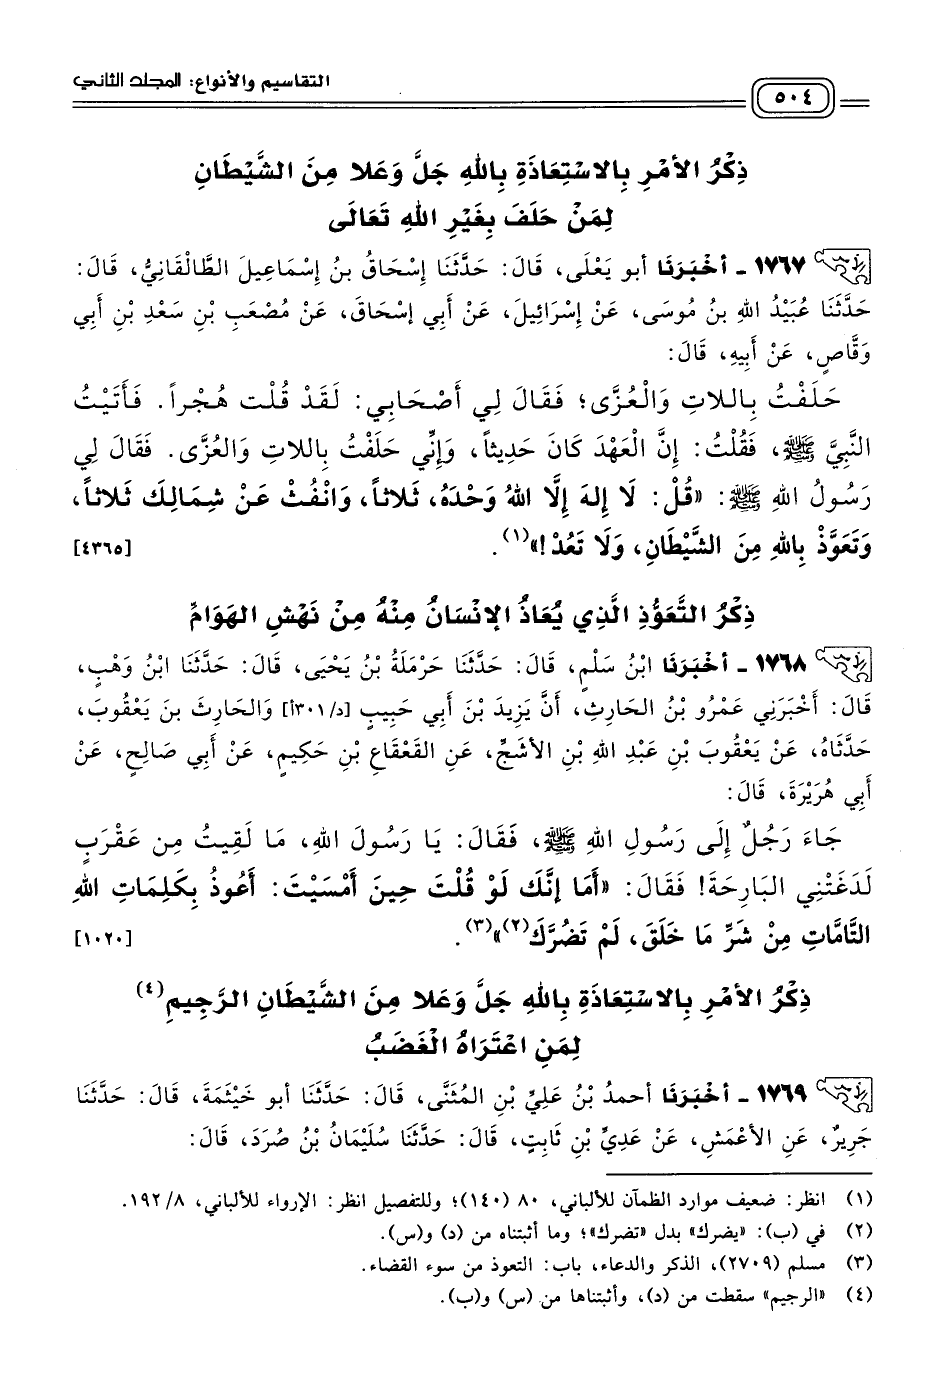 التقاسيم والأنواع: المجلد الثاني
٥٠٤
ذِكْرُ الأَمْرِ بِالاسْتِعَاذَةِ بِاللهِ جَلَّ وَعَلا مِنَ الشَّيْطَانِ
لِمَنْ حَلَفَ بِغَيْرِ اللهِ تَعَالَى
١٧٦٧ - أَخْبَرَنَا أبو يَعْلَى، قَالَ: حَدَّثَنَا إِسْحَاقُ بنُ إِسْمَاعِيلَ الطَّالْقَانِيُّ، قَالَ:
حَدَّثَنَا عُبَيْدُ اللهِ بنُ مُوسَى، عَنْ إِسْرَائِيلَ، عَنْ أَبِي إسْحَاقَ، عَنْ مُصْعَبِ بْنِ سَعْدِ بْنِ أَبِي
وَقَّاصٍ، عَنْ أَبِيهِ، قَالَ:
حَلَفْتُ بِاللاتِ وَالْعُزَّى؛ فَقَالَ لِي أَصْحَابِي: لَقَدْ قُلْت هُجْراً. فَأَتَيْتُ
النَّبِيَّ ﷺ، فَقُلْتُ: إِنَّ الْعَهْدَ كَانَ حَدِيثاً، وَإِنِّي حَلَفْتُ بِاللاتِ وَالعُزَّى. فَقَالَ لِي
رَسُولُ اللهِ ﷺ: «قُلْ: لَا إِلهَ إِلَّا اللهُ وَحْدَهُ، ثَلاثاً، وَانْفُثْ عَنْ شِمَالِك ثَلاثاً،
وَتَعَوَّذْ بِاللهِ مِنَ الشَّيْطَانِ، وَلَا تَعُدْ!»(١). [٤٣٦٥]
ذِكْرُ التَّعَوُّذِ الَّذِي يُعَاذُ الإِنْسَانُ مِنْهُ مِنْ نَهْشِ الهَوَامِّ
١٧٦٨ - أَخْبَرَنَا ابْنُ سَلْمٍ، قَالَ: حَدَّثَنَا حَرْمَلَةُ بْنُ يَحْيَى، قَالَ: حَدَّثَنَا ابْنُ وَهْبٍ،
قَالَ: أَخْبَرَنِي عَمْرُو بْنُ الحَارِثِ، أَنَّ يَزِيدَ بْنَ أَبِي حَبِيبٍ [د/٣٠١أ] وَالحَارِثَ بنَ يَعْقُوبَ،
حَدَّثَاهُ، عَنْ يَعْقُوبَ بْنِ عَبْدِ اللهِ بْنِ الأَشَجِّ، عَنِ القَعْقَاعِ بْنِ حَكِيمٍ، عَنْ أَبِي صَالِحٍ، عَنْ
أَبِي هُرَيْرَةَ، قَالَ:
جَاءَ رَجُلٌ إِلَى رَسُولِ اللهِ ﷺ، فَقَالَ: يَا رَسُولَ اللهِ، مَا لَقِيتُ مِن عَقْرَبٍ
لَدَغَتْنِي البَارِحَةَ! فَقَالَ: «أَمَا إِنَّكَ لَوْ قُلْتَ حِينَ أَمْسَيْتَ: أَعُوذُ بِكَلِمَاتِ اللهِ
التَّامَّاتِ مِنْ شَرِّ مَا خَلَقَ، لَمْ تَضُرَّكَ(٢)»(٣). [١٠٢٠]
ذِكْرُ الأَمْرِ بِالاسْتِعَاذَةِ بِاللهِ جَلَّ وَعَلا مِنَ الشَّيْطَانِ الرَّجِيمِ(٤)
لِمَنِ اعْتَرَاهُ الْغَضَبُ
١٧٦٩ - أَخْبَرَنَا أحمدُ بْنُ عَلِيِّ بْنِ المُثَنَّى، قَالَ: حَدَّثَنَا أبو خَيْثَمَةَ، قَالَ: حَدَّثَنَا
جَرِيرٌ، عَنِ الأَعْمَشِ، عَنْ عَدِيِّ بْنِ ثَابِتٍ، قَالَ: حَدَّثَنَا سُلَيْمَانُ بْنُ صُرَدَ، قَالَ:
(١) انظر: ضعيف موارد الظمآن للألباني، ٨٠ (١٤٠)؛ وللتفصيل انظر: الإرواء للألباني، ٨/ ١٩٢.
(٢) في (ب): «يضرك» بدل «تضرك»؛ وما أثبتناه من (د) و(س).
(٣) مسلم (٢٧٠٩)، الذكر والدعاء، باب: التعوذ من سوء القضاء.
(٤) «الرجيم» سقطت من (د)، وأثبتناها من (س) و(ب).